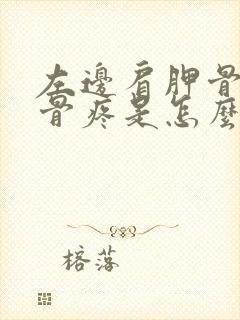 左邊肩胛骨
骨疼是怎麼
榕落